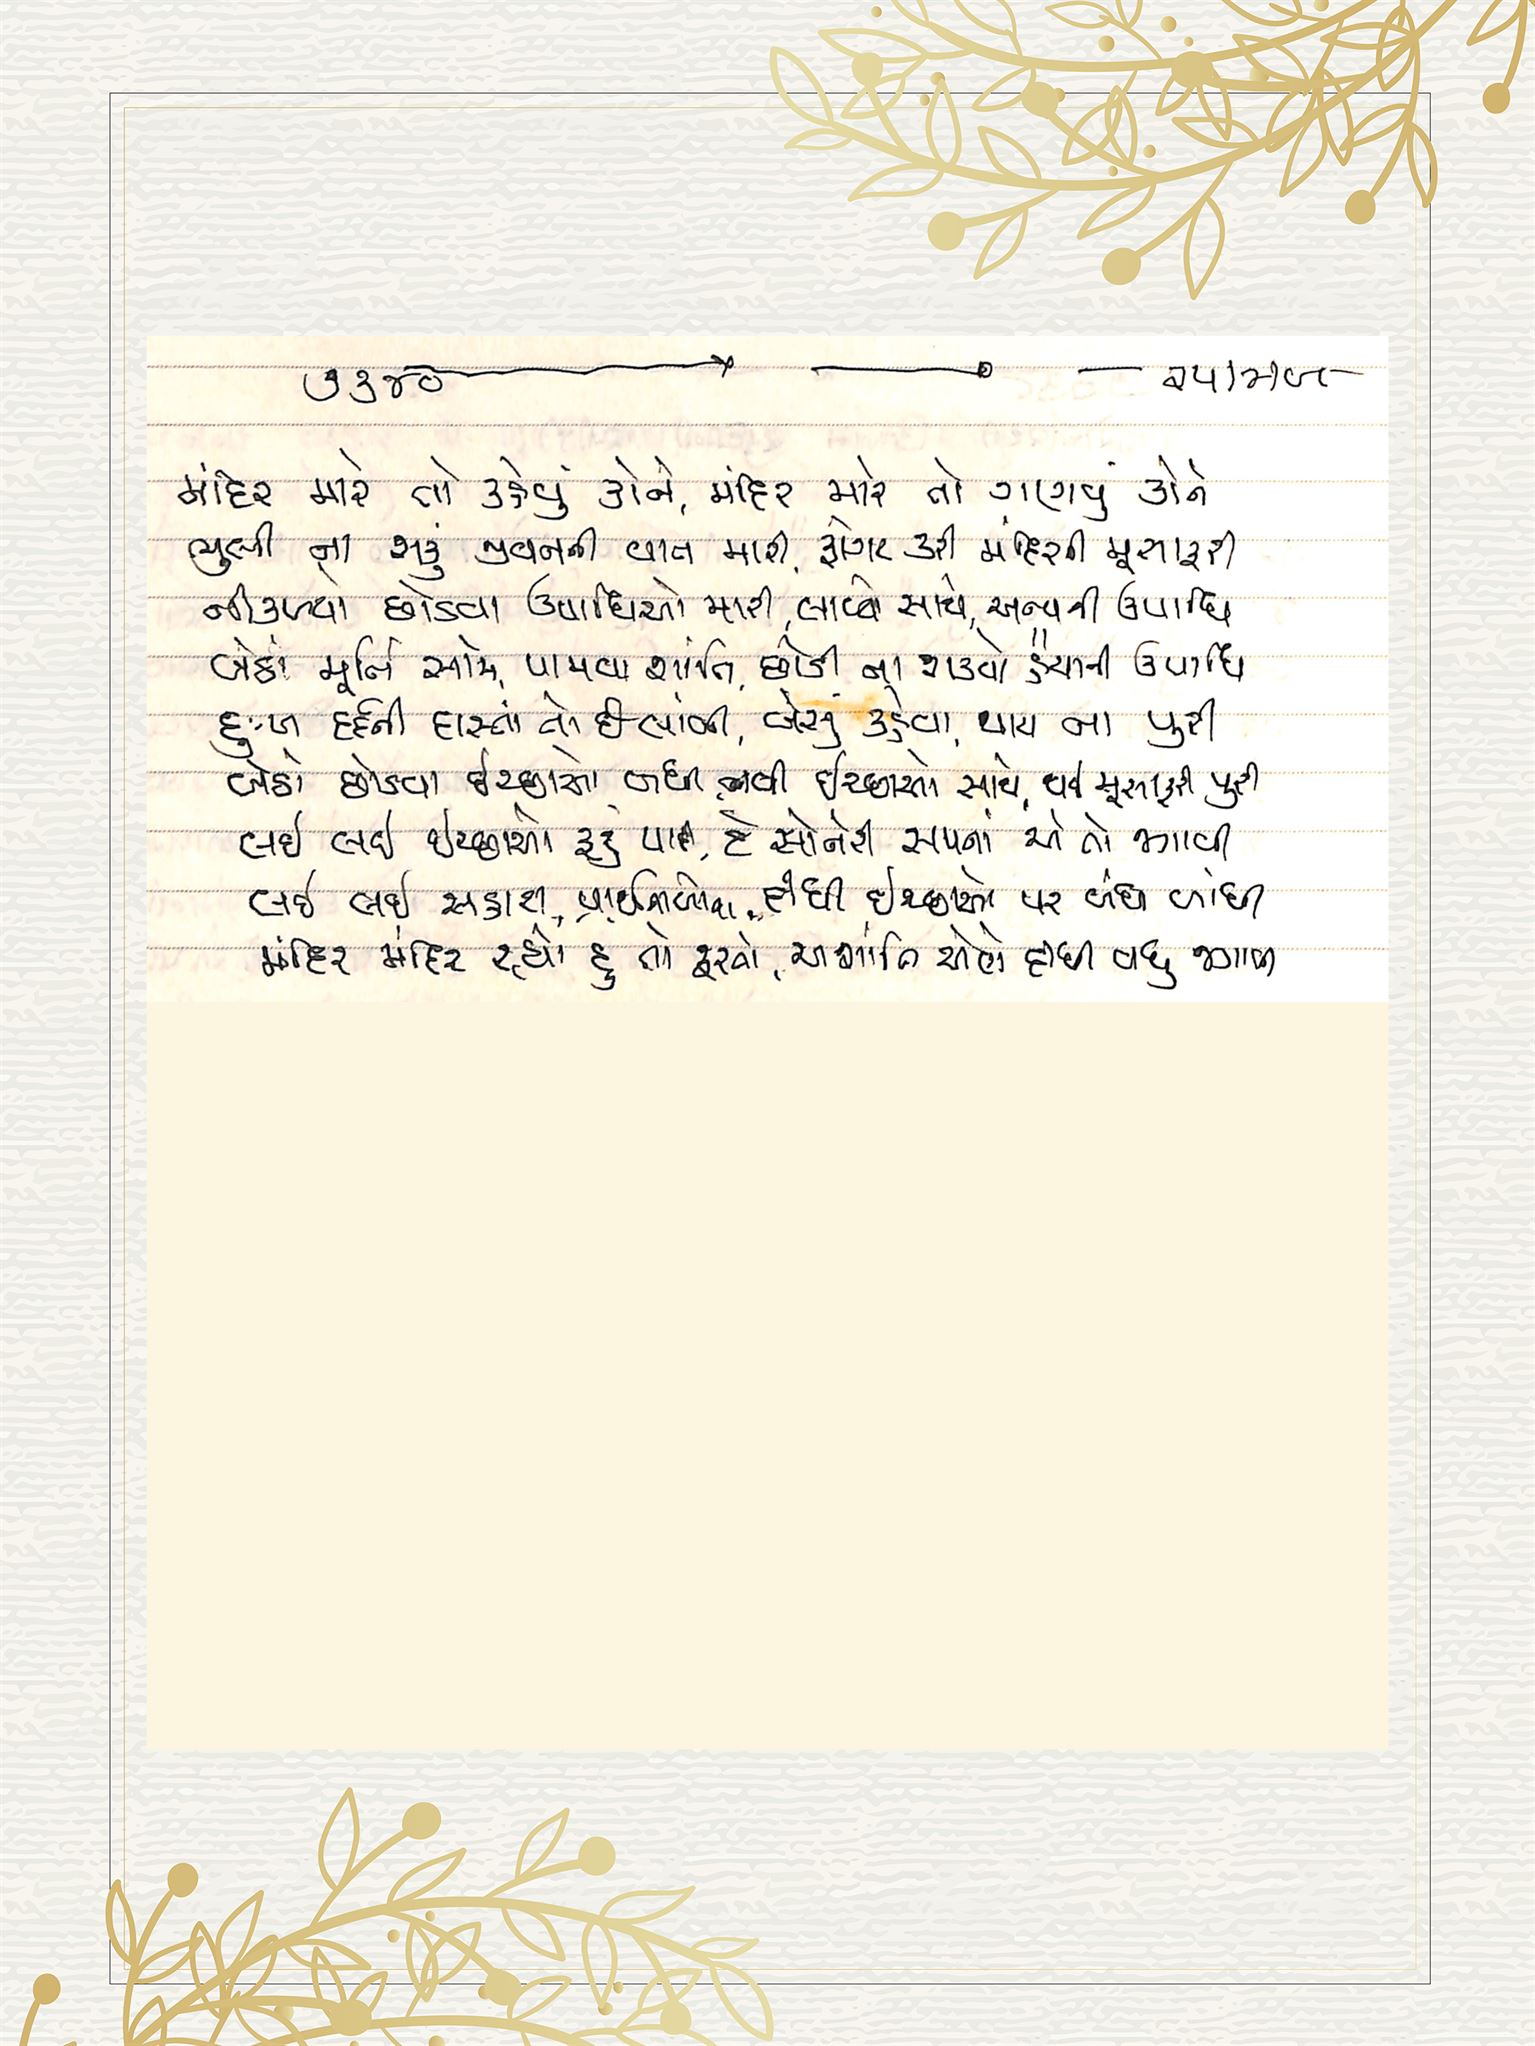 ૭૩૪૦
મંદિર મારે તો કહેવું કોને, મંદિર મારે તો ગણવું કોને
ભુલી ના શકું જીવનની વાત મારી, ફોગટ કરી મંદિરની મુસાફરી
નીકળ્યો છોડવા ઉપાધિઓ મારી, લાવ્યો સાથે, અન્યની ઉપાધિ
બેઠો મૂર્તિ સામે, પામવા શાંતિ, છોડી ના શક્યો હૈયાની ઉપાધિ
દુઃખ દર્દની દાસ્તાં તો છે લાંબી, બેસું કહેવા, થાય ના પુરી
બેઠો છોડવા ઈચ્છાઓ બધી, નવી ઈચ્છાઓ સાથે, થઈ મુસાફરી પુરી
લઈ લઈ ઈચ્છાઓ ફરું પાછો, છે સોનેરી સપનાં એ તો જગાવી
લઈ લઈ સહારા, દીધી ઈચ્છાઓ પર બંધ બાંધી
મંદિર મંદિર રહ્યો હું તો ફરતો, અશાંતિ એણે દીધી વધુ જગાવી